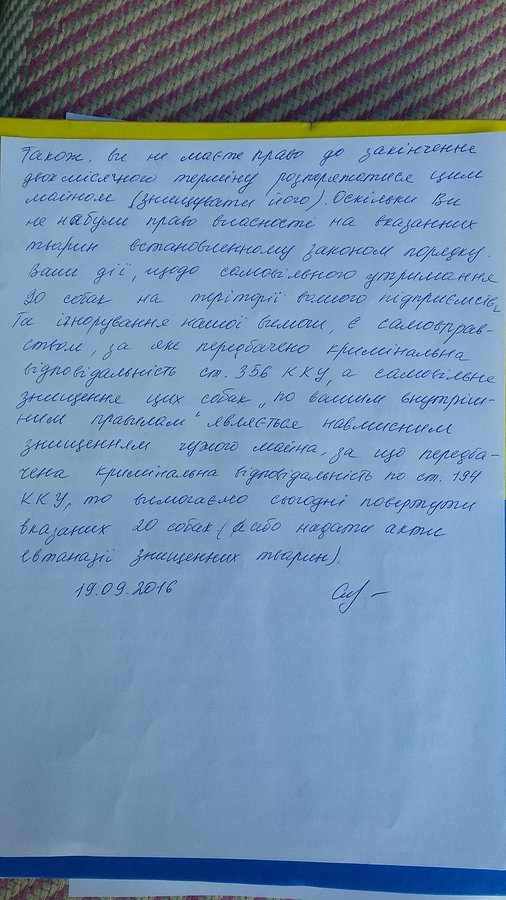 Також, ви не маєте право до закінчення
двохмісячного терміну розпоряжатися цим
майном (знищувати його). Оскільки Ви
не набули право власності на вказанних
тварин встановленному законом порядку.
Ваши дії, щодо самовільного утримання
20 собак на теріторії вашого підприємства
Та ігнорування нашої вимоги, є самоправ-
ством, за яке передбачено кримінальна
відповідальність ст. 356 ККУ, а самовільне
знищення цих собак „по вашим внутріш-
ним правилам" являється навмисним
знищенням чужого майна, за що передба-
чена кримінальна відповідальність по ст. 194
ККУ, то вимогаємо сьогодні повернути
вказаних 20 собак (або надати акти
евтаназії знищенних тварин).
19.09.2016